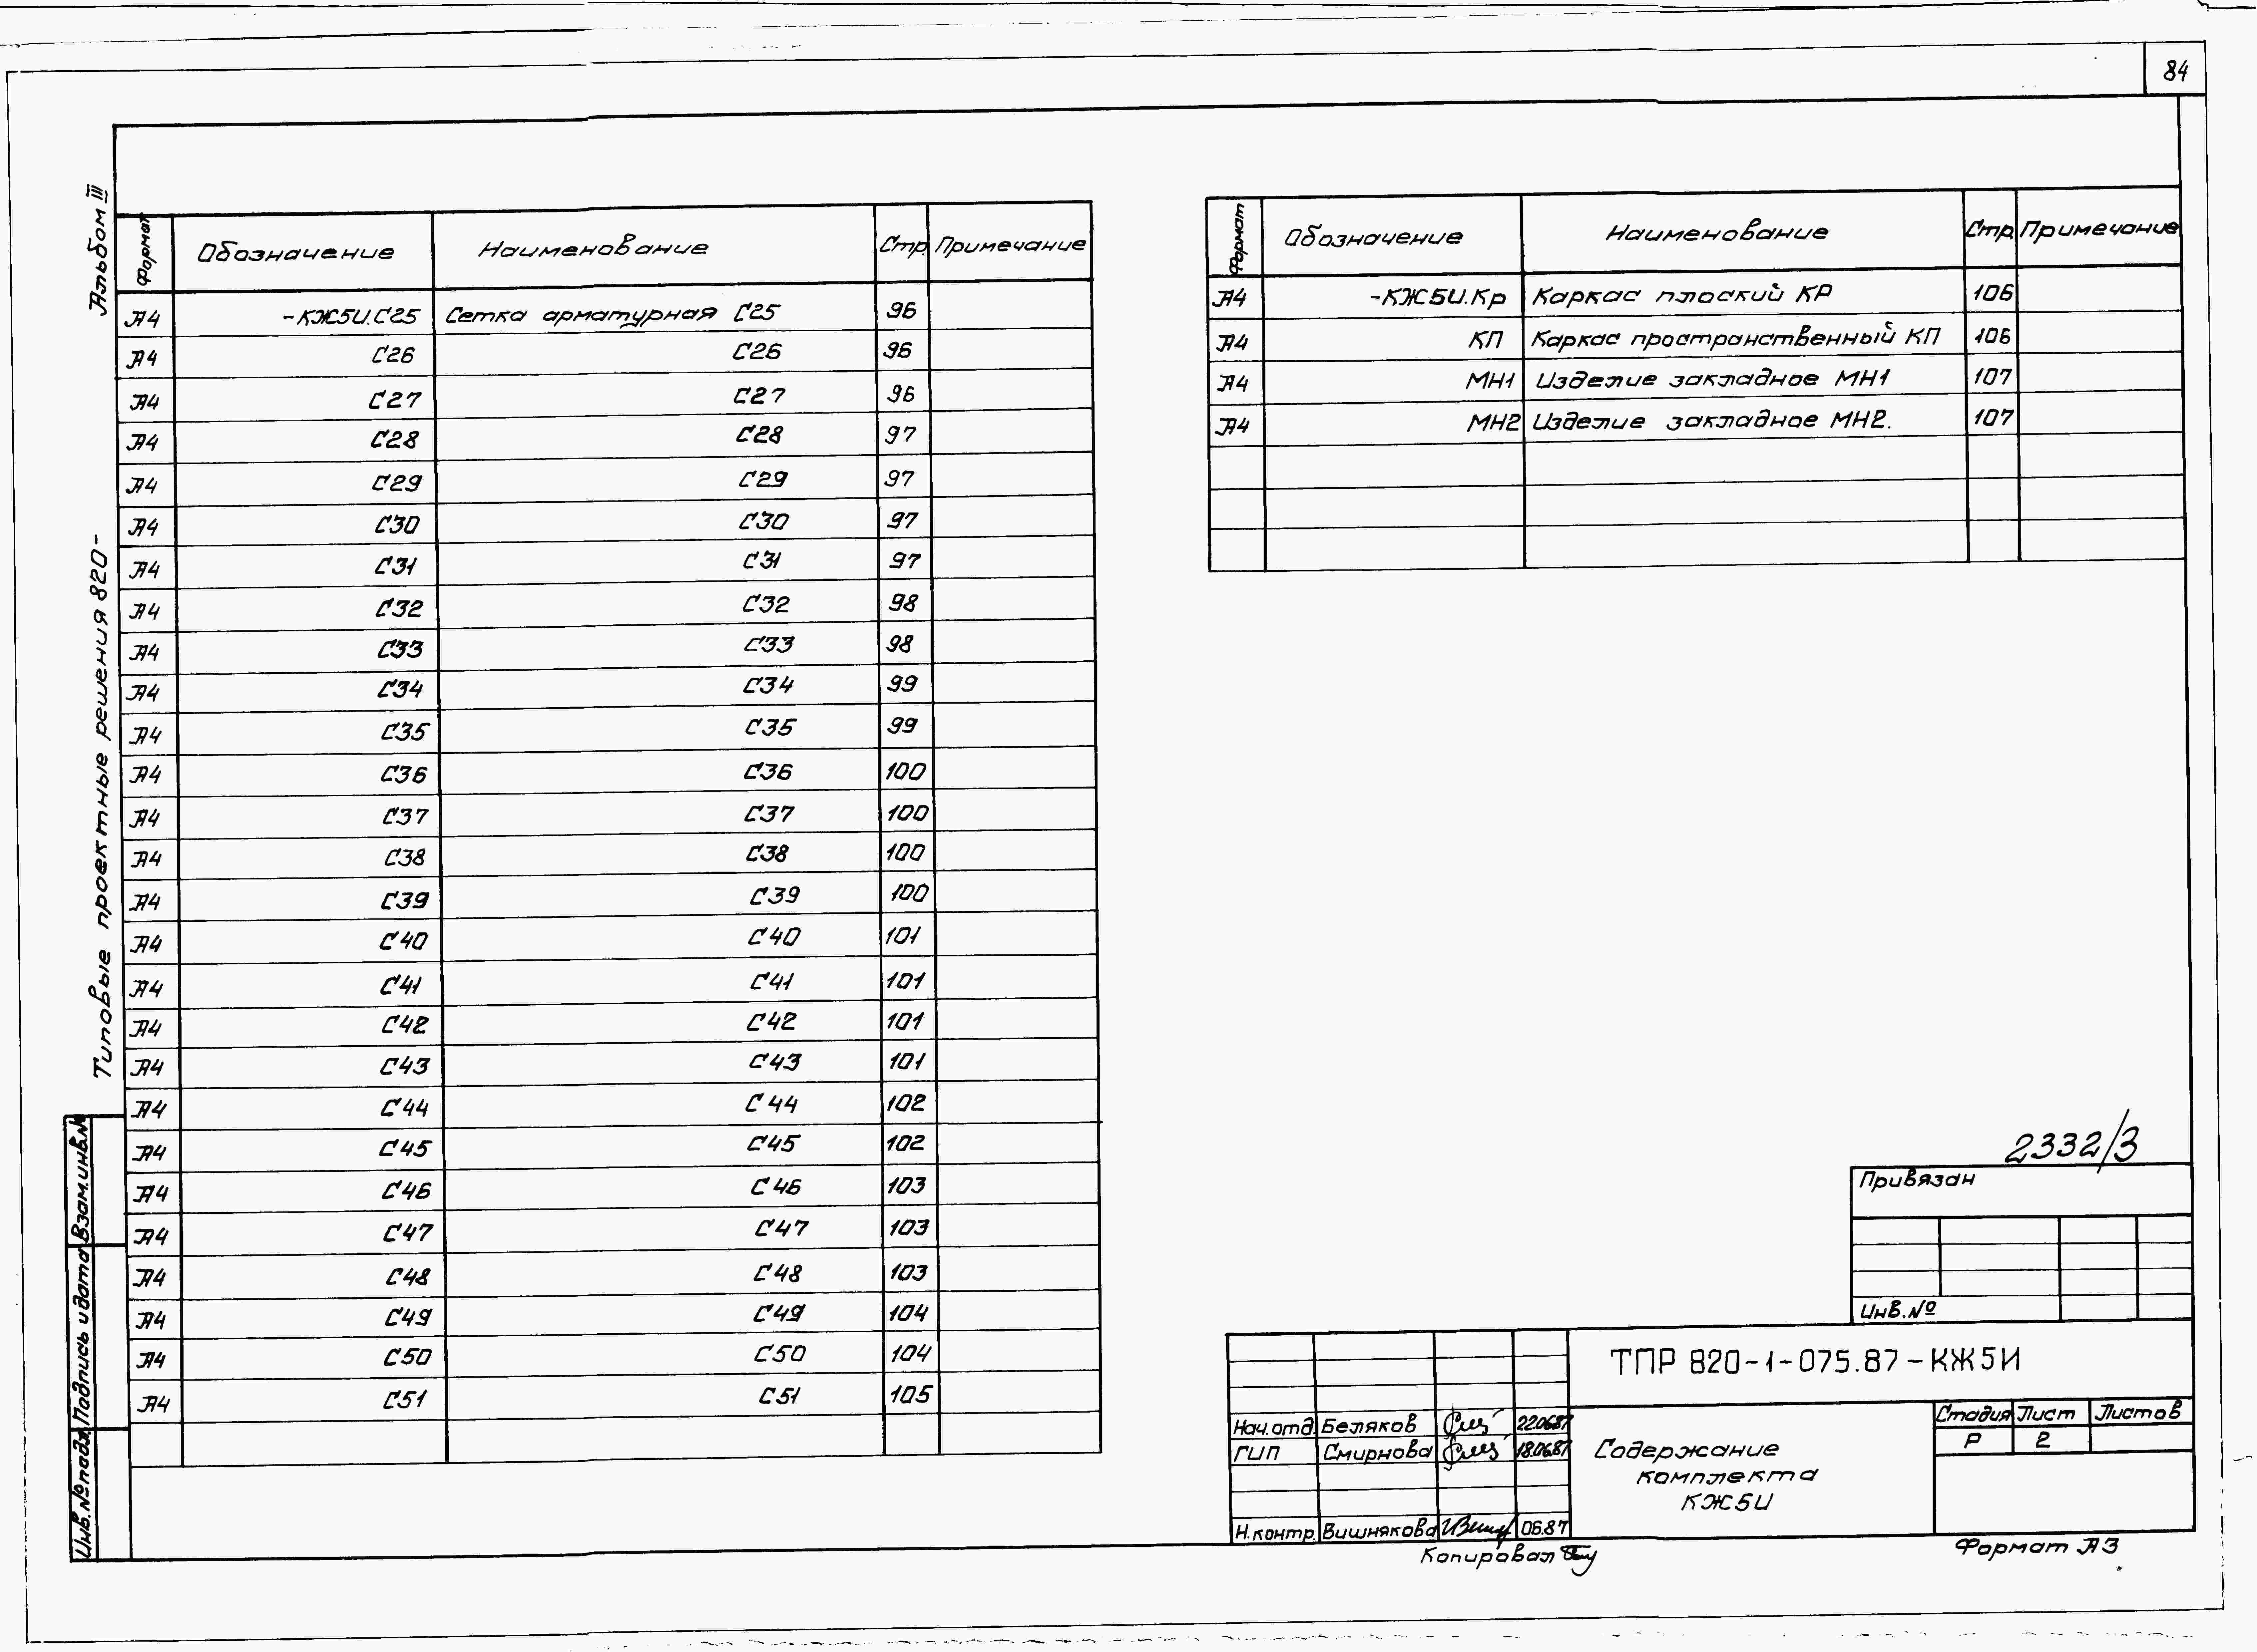 84
Альбом III
Типовые проектные решения 820-
Формат Обозначение Наименование Стр. Примечание
А4 -КЖ5И.С25 Сетка арматурная С25 96
А4 С26 С26 96
А4 С27 С27 96
А4 С28 С28 97
А4 С29 С29 97
А4 С30 С30 97
А4 С31 С31 97
А4 С32 С32 98
А4 С33 С33 98
А4 С34 С34 99
А4 С35 С35 99
А4 С36 С36 100
А4 С37 С37 100
А4 С38 С38 100
А4 С39 С39 100
А4 С40 С40 101
А4 С41 С41 101
А4 С42 С42 101
А4 С43 С43 101
А4 С44 С44 102
А4 С45 С45 102
А4 С46 С46 103
А4 С47 С47 103
А4 С48 С48 103
А4 С49 С49 104
А4 С50 С50 104
А4 С51 С51 105
Формат Обозначение Наименование Стр. Примечание
А4 -КЖ5И.Кр Каркас плоский КР 106
А4 КП Каркас пространственный КП 106
А4 МН1 Изделие закладное МН1 107
А4 МН2 Изделие закладное МН2. 107
Взам.инв.№
Подпись и дата
Инв.№ подл.
2332/3
Привязан
Инв.№
ТПР 820-1-075.87-КЖ5И
Нач.отд. Беляков 22.06.87
ГИП Смирнова 18.06.87
Н.контр. Вишнякова 06.87
Содержание
комплекта
КЖ5И
Стадия Лист Листов
Р 2
Копировал
Формат А3